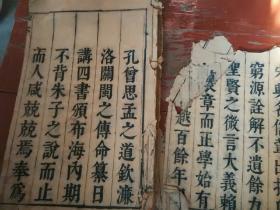 窮源詮解不遺餘力
聖賢之微言大義賴
章而正學始有
越百餘年
孔曾思孟之道欽濂
洛關閩之傳命纂日
講四書頒布海內期
不背朱子之說而止
而人咸兢兢焉奉為